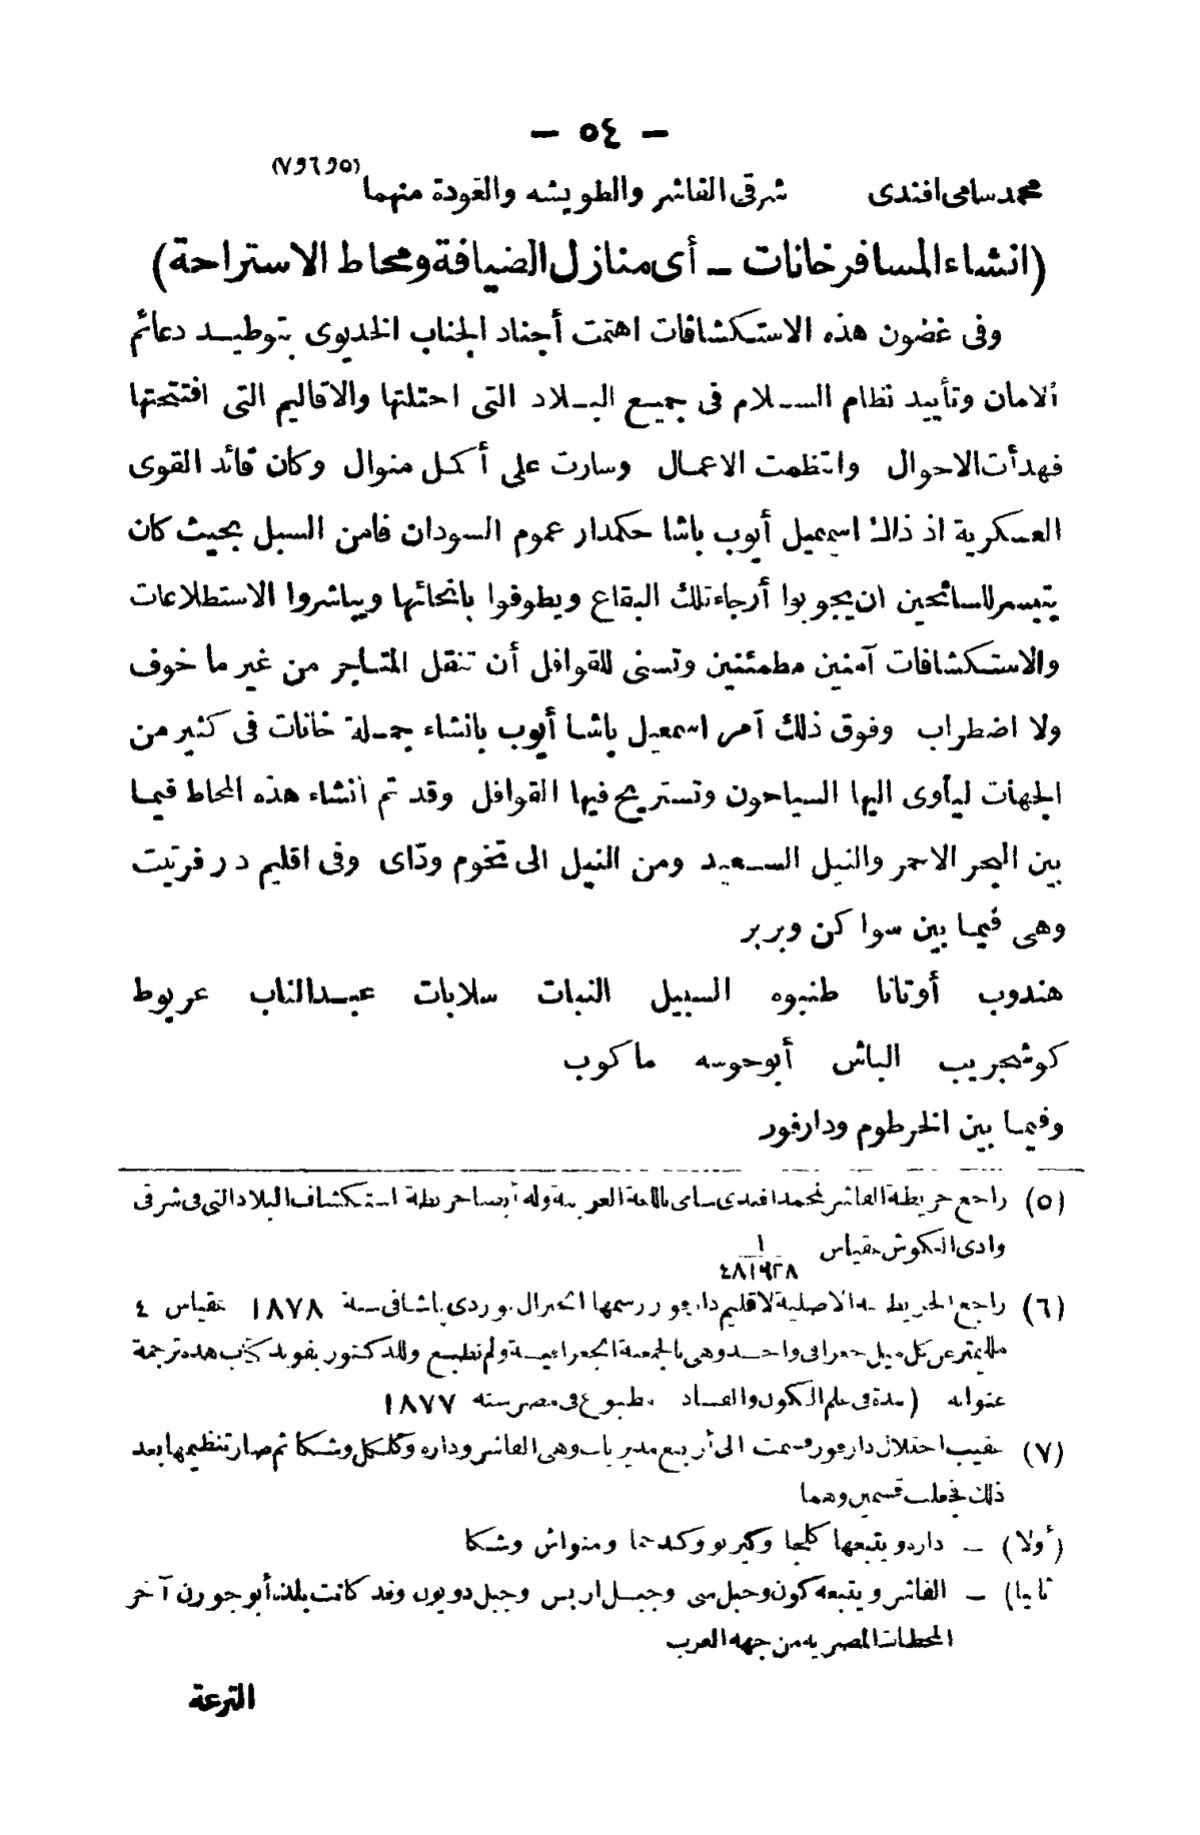 — ٥٤ —
محمد سامى افندى شرقى الفاشر والطويشه والعودة منهما (٥و٦و٧)
(انشاء المسافرخانات – أى منازل الضيافة ومحاط الاستراحة)
وفى غضون هذه الاستكشافات اهتمت أجناد الجناب الخديوى بتوطيد دعائم
الامان وتأييد نظام السلام فى جميع البلاد التى احتلتها والاقاليم التى افتتحتها
فهدأت الاحوال وانتظمت الاعمال وسارت على أكمل منوال وكان قائد القوى
العسكرية اذ ذاك اسمعيل أيوب باشا حكمدار عموم السودان فامن السبل بحيث كان
يتيسر للسائحين ان يجوبوا أرجاء تلك البقاع ويطوفوا بانحائها ويباشروا الاستطلاعات
والاستكشافات آمنين مطمئنين وتسنى للقوافل أن تنقل المتاجر من غير ما خوف
ولا اضطراب وفوق ذلك أمر اسمعيل باشا أيوب بانشاء جملة خانات فى كثير من
الجهات ليأوى اليها السياحون وتستريح فيها القوافل وقد تم انشاء هذه المحاط فيما
بين البحر الاحمر والنيل السعيد ومن النيل الى تخوم ودّاى وفى اقليم در فرتيت
وهى فيما بين سواكن وبربر
هندوب أوتانا طنبوه السبيل النبات سلابات عبدالناب عريوط
كوشجريب الباش أبوحوسه ماكوب
وفيما بين الخرطوم ودارفور
(٥) راجع خريطة الفاشر لمحمد افندى سامى باللغة العربية وله أيضا خريطة استكشاف البلاد التى فى شرقى
وادى الكوش بمقياس ١
(٦) راجع الخريطة الاصلية لاقليم دارفور رسمها الجنرال بوردى باشا فى سنة ١٨٧٨ بمقياس ٤
ملليمتر عن كل ميل جغرافى واحد وهى بالجمعية الجغرافية ولم تطبع وللدكتور بفوند كتاب هذه ترجمة
عنوانه (نبذة فى علم الكون والفساد) مطبوع فى مصر سنه ١٨٧٧
(٧) عقيب احتلال دارفور قسمت الى أربع مديريات وهى الفاشر وداره وكلكل وشكا ثم صار تنظيمها بعد
ذلك فجعلت قسمين وهما
(أولا) – داره ويتبعها كلجا وكبربو وكدما ومنواش وشكا
(ثانيا) – الفاشر ويتبعه كون وجبل سى وجبل اربس وجبل دوبون وقد كانت بلدة أبو جورن آخر
المحطات المصريه من جهه العرب
الترعة